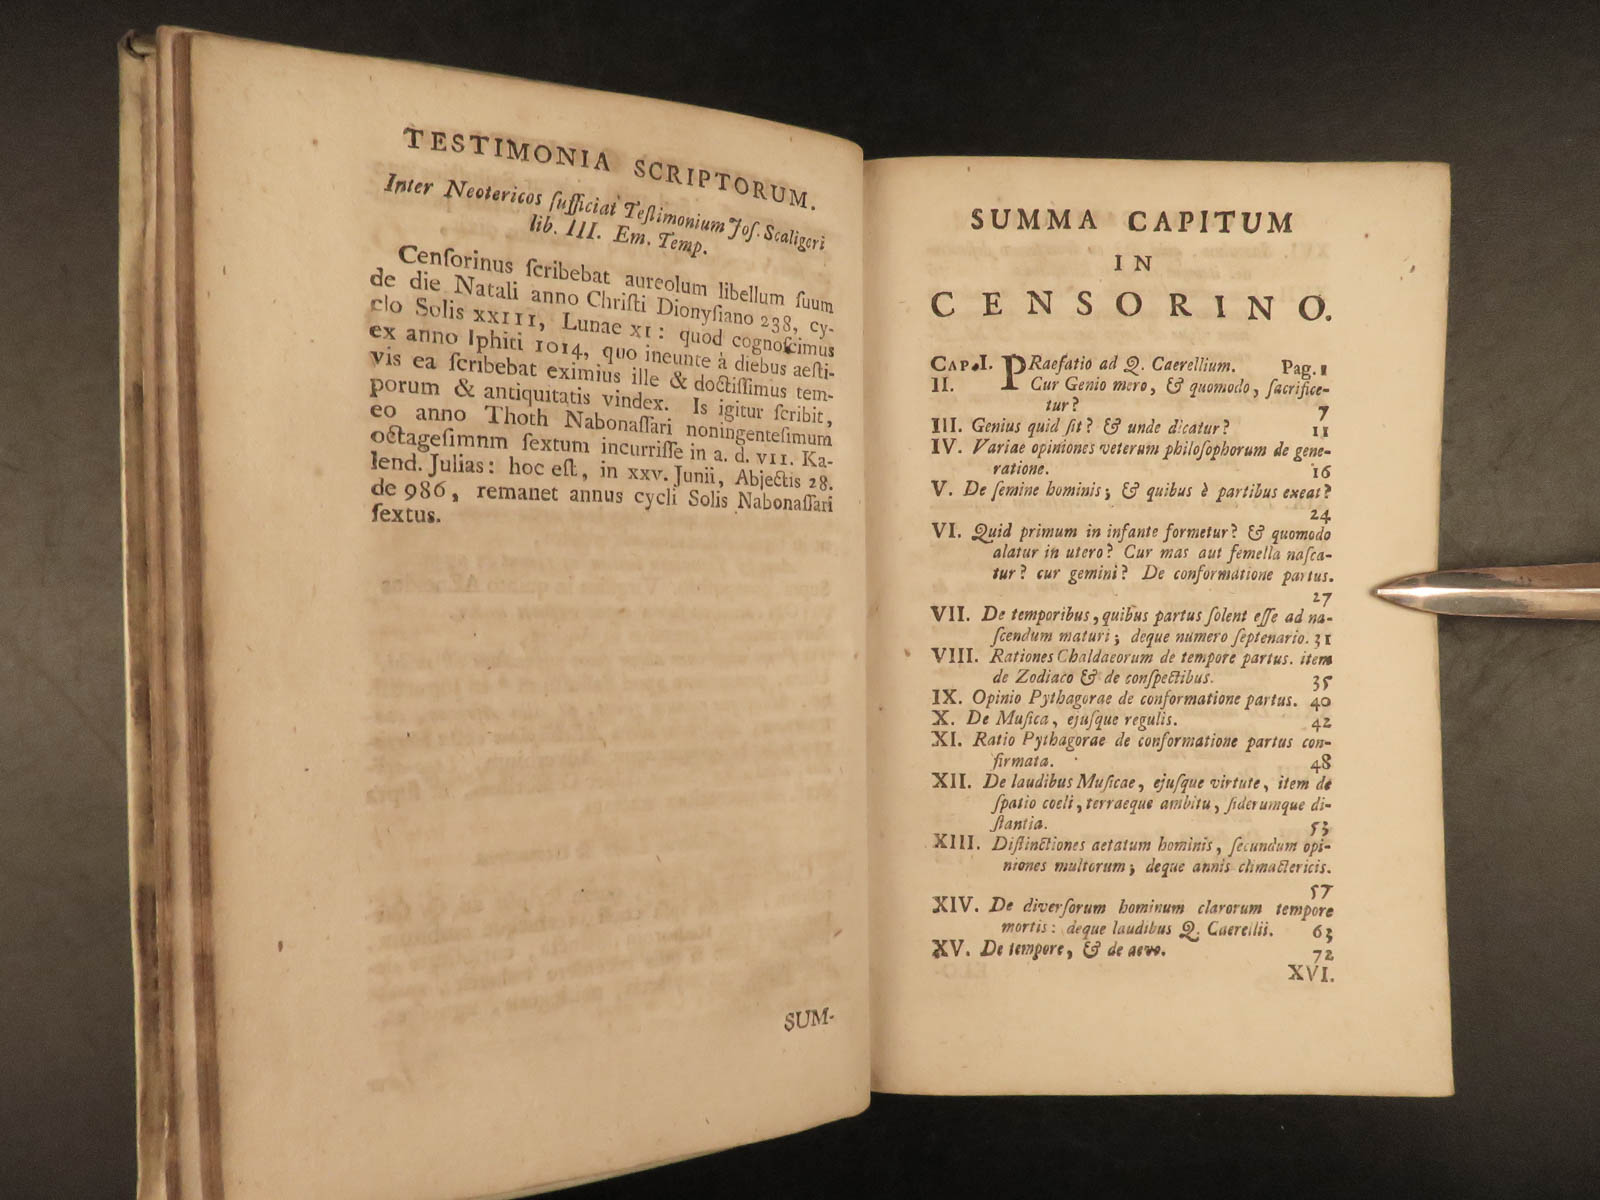 TESTIMONIA SCRIPTORUM.
Inter Neotericos ſufficiat Teſtimonium Joſ. Scaligeri
lib. III. Em. Temp.
Cenſorinus ſcribebat aureolum libellum ſuum
de die Natali anno Chriſti Dionyſiano 238, cy-
clo Solis XXIII, Lunae XI: quod cognoſcimus
ex anno Iphiti 1014, quo ineunte à diebus aeſti-
vis ea ſcribebat eximius ille & doctiſſimus tem-
porum & antiquitatis vindex. Is igitur ſcribit,
eo anno Thoth Nabonaſſari noningenteſimum
octageſimnm ſextum incurriſſe in a. d. VII. Ka-
lend. Julias: hoc eſt, in XXV. Junii, Abjectis 28.
de 986, remanet annus cycli Solis Nabonaſſari
ſextus.
SUM-
SUMMA CAPITUM
IN
CENSORINO.
CAP. I. PRaefatio ad Q. Caerellium. Pag. 1
II. Cur Genio mero, & quomodo, ſacrifice-
tur? 7
III. Genius quid ſit? & unde dicatur? 11
IV. Variae opiniones veterum philoſophorum de gene-
ratione. 16
V. De ſemine hominis; & quibus è partibus exeat?
24
VI. Quid primum in infante formetur? & quomodo
alatur in utero? Cur mas aut femella naſca-
tur? cur gemini? De conformatione partus.
27
VII. De temporibus, quibus partus ſolent eſſe ad na-
ſcendum maturi; deque numero ſeptenario. 31
VIII. Rationes Chaldaeorum de tempore partus. item
de Zodiaco & de conſpectibus. 35
IX. Opinio Pythagorae de conformatione partus. 40
X. De Muſica, ejuſque regulis. 42
XI. Ratio Pythagorae de conformatione partus con-
firmata. 48
XII. De laudibus Muſicae, ejuſque virtute, item de
ſpatio coeli, terraeque ambitu, ſiderumque di-
ſtantia. 53
XIII. Diſtinctiones aetatum hominis, ſecundum opi-
niones multorum; deque annis climactericis.
57
XIV. De diverſorum hominum clarorum tempore
mortis: deque laudibus Q. Caerellii. 63
XV. De tempore, & de aevo. 72
XVI.